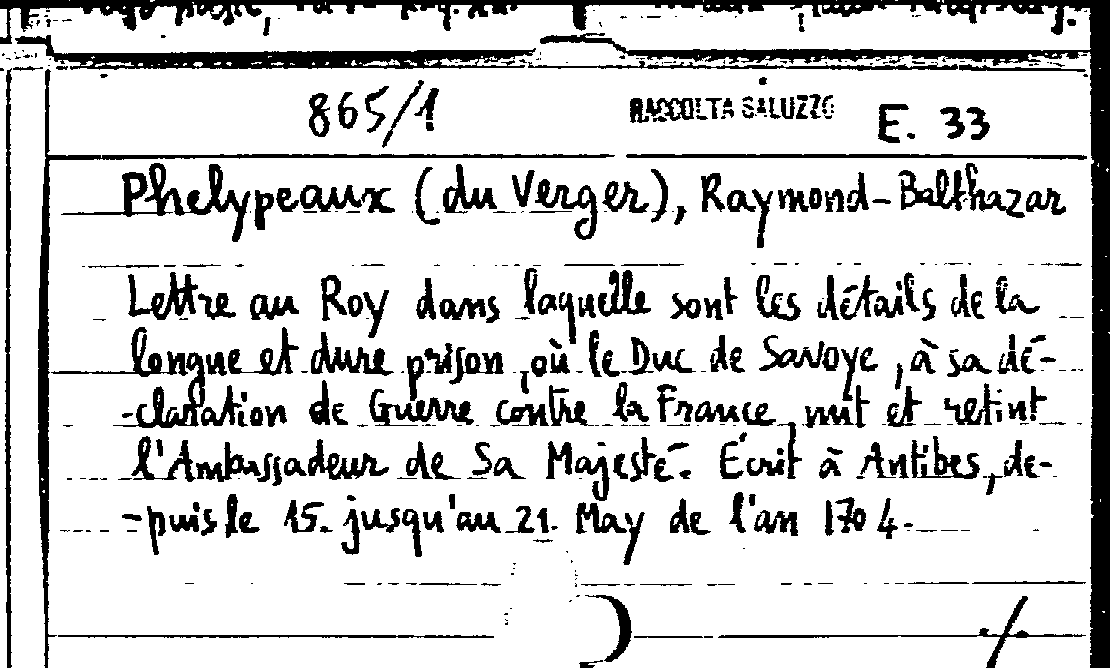 865/1 RACCOLTA SALUZZO E. 33
Phelypeaux (du Verger), Raymond-Balthazar
Lettre au Roy dans laquelle sont les détails de la
longue et dure prison, où le Duc de Savoye, à sa dé-
-claration de Guerre contre la France, mit et retint
l'Ambassadeur de Sa Majesté. Écrit à Antibes, de-
-puis le 15. jusqu'au 21. May de l'an 1704.